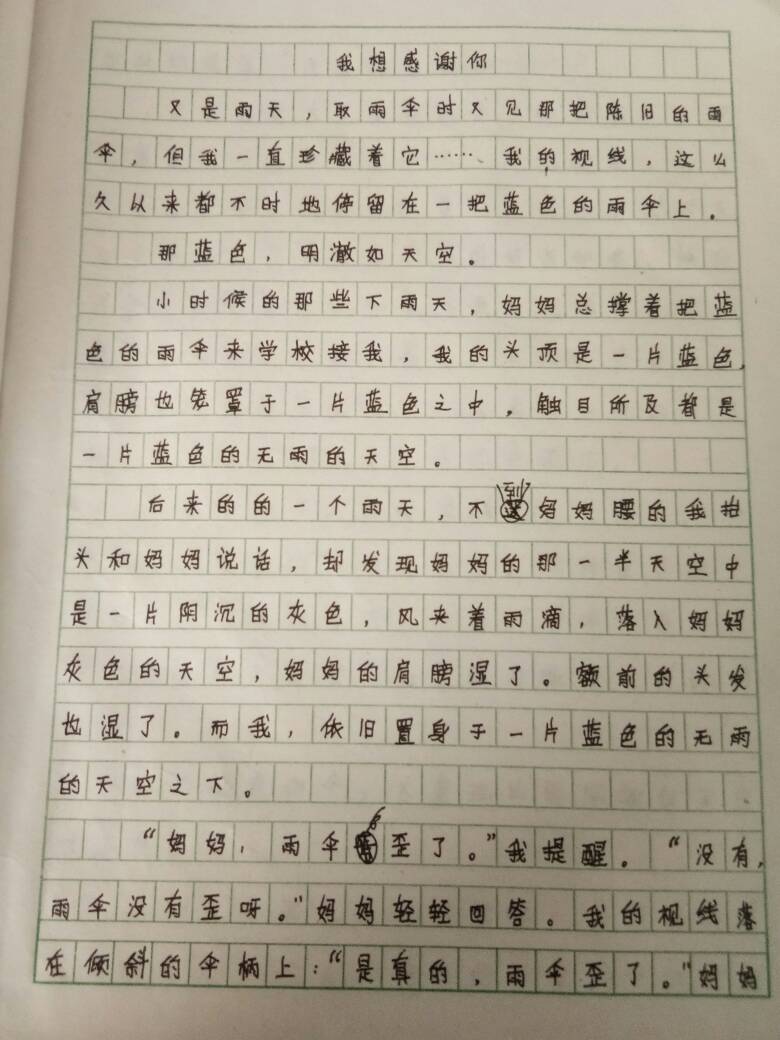 我想感谢你
又是雨天，取雨伞时又见那把陈旧的雨
伞，但我一直珍藏着它……我的视线，这么
久以来都不时地停留在一把蓝色的雨伞上．
那蓝色，明澈如天空。
小时候的那些下雨天，妈妈总撑着把蓝
色的雨伞来学校接我，我的头顶是一片蓝色，
肩膀也笼罩于一片蓝色之中，触目所及都是
一片蓝色的无雨的天空。
后来的的一个雨天，不到妈妈腰的我抬
头和妈妈说话，却发现妈妈的那一半天空中
是一片阴沉的灰色，风夹着雨滴，落入妈妈
灰色的天空，妈妈的肩膀湿了。额前的头发
也湿了。而我，依旧置身于一片蓝色的无雨
的天空之下。
“妈妈，雨伞歪了。”我提醒．“没有，
雨伞没有歪呀。”妈妈轻轻回答。我的视线落
在倾斜的伞柄上：“是真的，雨伞歪了。”妈妈